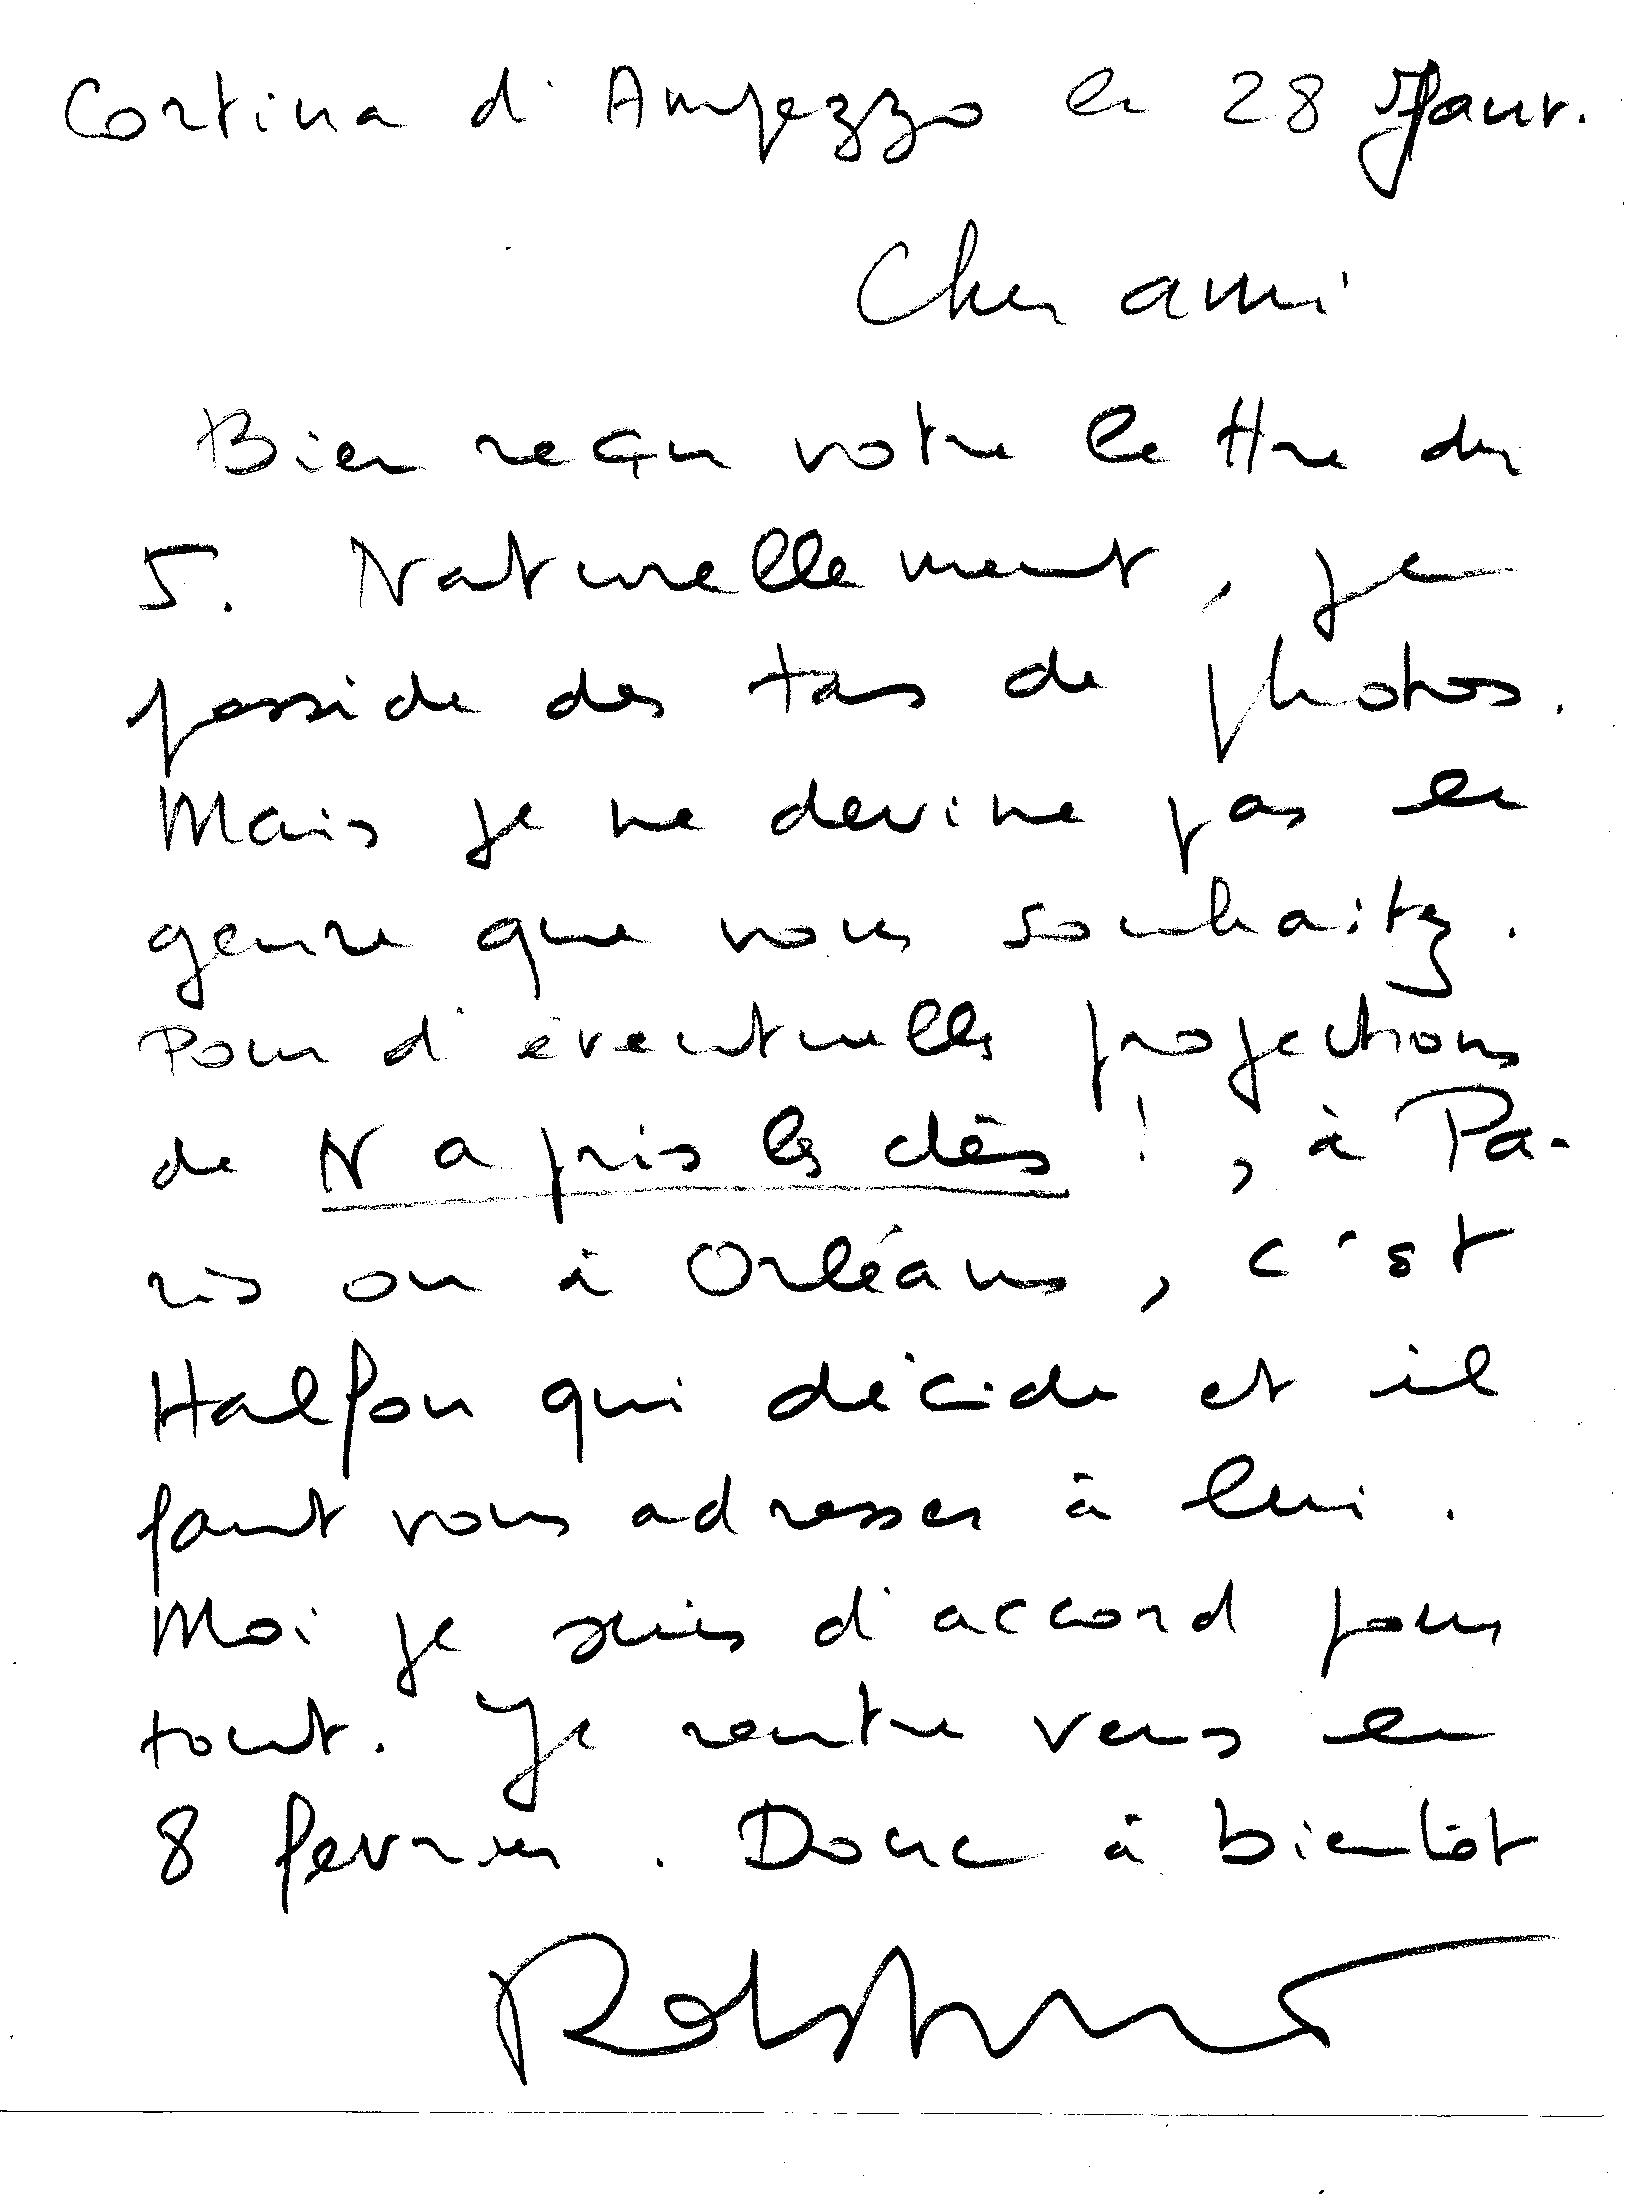 Cortina d'Ampezzo le 28 Janv.
Cher ami
Bien reçu votre lettre du
5. Naturellement, je
possède des tas de photos.
Mais je ne devine pas le
genre que vous souhaitez.
Pour d'éventuelles projections
de N a pris les dés !, à Pa-
ris ou à Orléans, c'est
Halfon qui décide et il
faut vous adresser à lui.
Moi je suis d'accord pour
tout. Je rentre vers le
8 février. Donc à bientôt